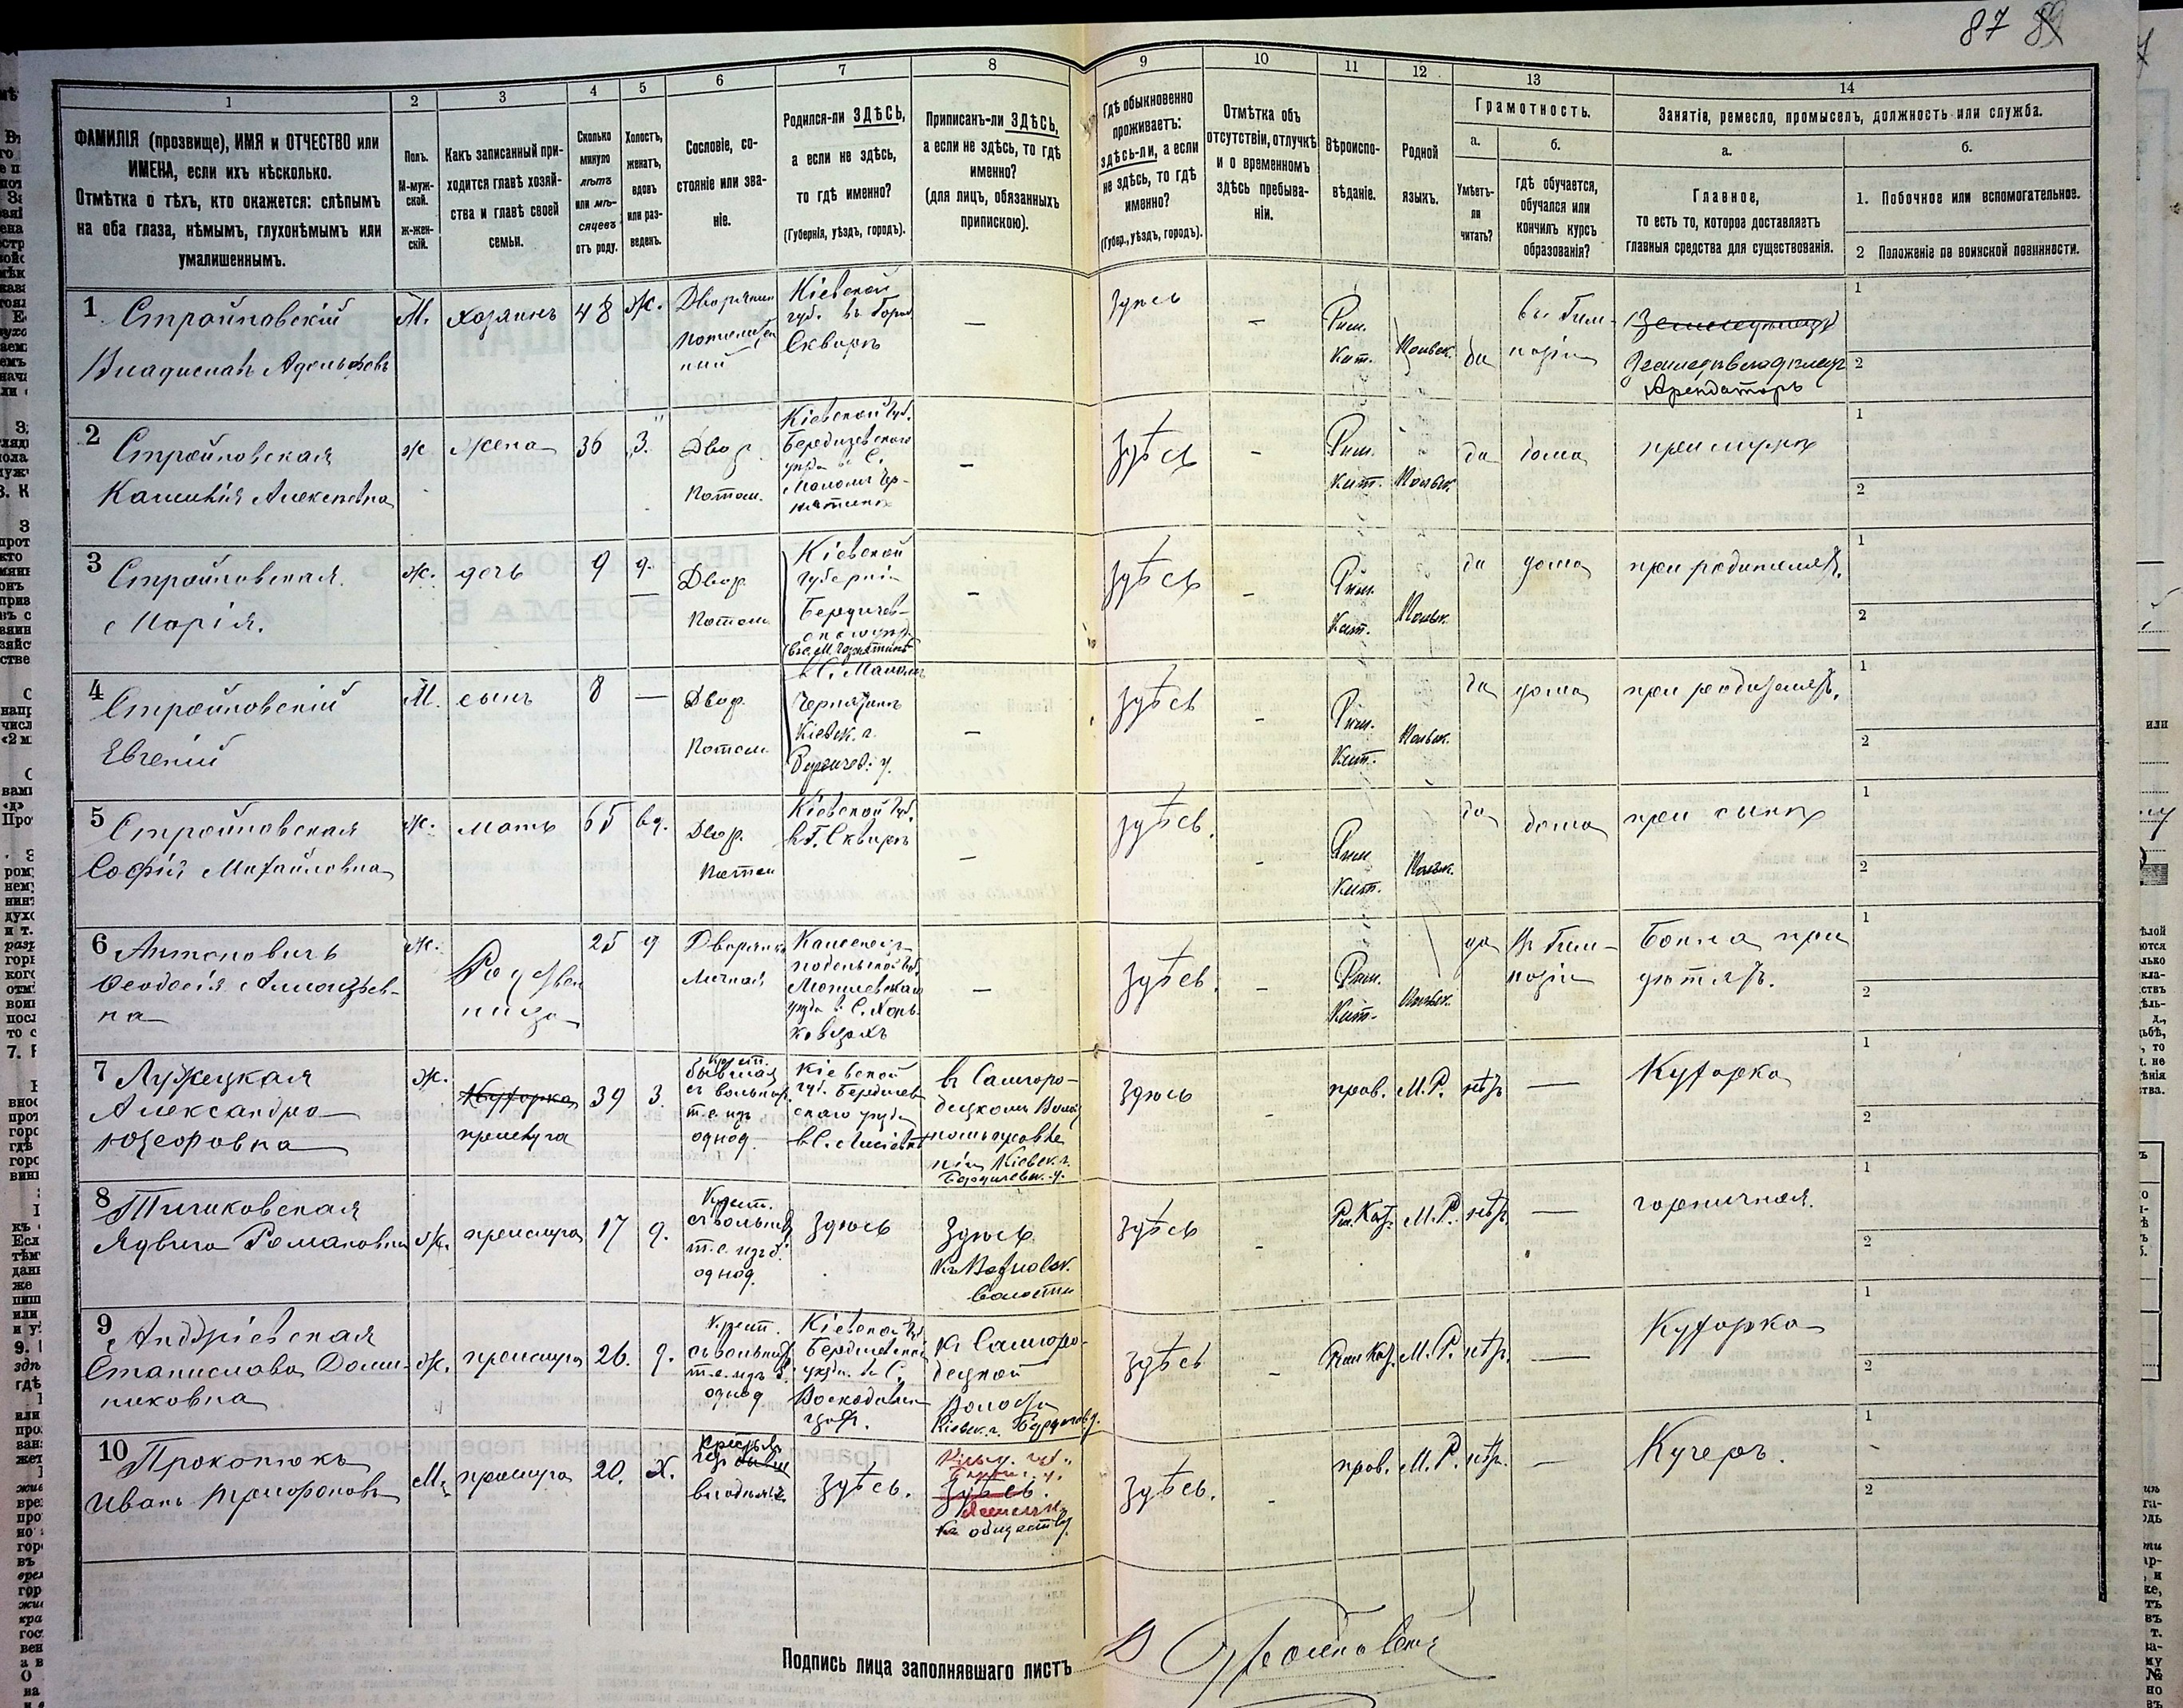 87 89
1
2
3
4
5
6
7
8
9
10
11
12
13
14
ФАМИЛІЯ (прозвище), ИМЯ и ОТЧЕСТВО или
ИМЕНА, если ихъ нѣсколько.
Отмѣтка о тѣхъ, кто окажется: слѣпымъ
на оба глаза, нѣмымъ, глухонѣмымъ или
умалишеннымъ.
Полъ.
М-муж-
ской.
Ж-жен-
скій.
Какъ записанный при-
ходится главѣ хозяй-
ства и главѣ своей
семьи.
Сколько
минуло
лѣтъ
или мѣ-
сяцевъ
отъ роду.
Холостъ,
женатъ,
вдовъ
или раз-
веденъ.
Сословіе, со-
стояніе или зва-
ніе.
Родился-ли ЗДѢСЬ,
а если не здѣсь,
то гдѣ именно?
(Губернія, уѣздъ, городъ).
Приписанъ-ли ЗДѢСЬ,
а если не здѣсь, то гдѣ
именно?
(для лицъ, обязанныхъ
припискою).
Гдѣ обыкновенно
проживаетъ:
здѣсь-ли, а если
не здѣсь, то гдѣ
именно?
(Губер., уѣздъ, городъ).
Отмѣтка объ
отсутствіи, отлучкѣ
и о временномъ
здѣсь пребыва-
ніи.
Вѣроиспо-
вѣданіе.
Родной
языкъ.
Грамотность.
а.
б.
Умѣетъ-
ли
читать?
гдѣ обучается,
обучался или
кончилъ курсъ
образованія?
Занятіе, ремесло, промыселъ, должность или служба.
а.
б.
Главное,
то есть то, которое доставляетъ
главныя средства для существованія.
1. Побочное или вспомогательное.
2 Положеніе по воинской повинности.
1
Стройновскій
Владиславъ Адольфовъ
М.
хозяинъ
48
Ж.
Дворянин
потомствен
ный
Кіевской
губ. въ Город
Сквирѣ
—
здѣсь
—
Рим.
Кат.
Польск.
да
въ Гим-
назіи
Землевладѣлецъ
Арендаторъ
1
2
2
Стройновская
Камилія Алексѣевна
ж
жена
36
З.
Двор.
Потом.
Кіевской Губ.
Бердичевского
уѣзда въ С.
Маломъ Чер-
нятинѣ
—
здѣсь
-
Рим.
Кат.
Польск.
да
дома
при мужѣ
1
2
3
Стройновская.
Марія.
ж.
дочь
9
д.
Двор.
Потом.
Кіевской
Губерніи
Бердичев-
скаго уѣзд.
въ с. М. Чернятинѣ
-
здѣсь
-
Рим.
Кат.
Польск.
да
дома
при родителяхъ.
1
2
4
Стройновскій
Евгеній
М.
сынъ
8
—
Двор.
Потом.
въ С. Маломъ
Чернятинѣ
Кіевск. г.
Бердичев. у.
—
здѣсь
-
Рим.
Кат.
Польск.
да
дома
при родителяхъ.
1
2
5
Стройновская
Софія Михайловна
ж.
мать
65
вд.
Двор.
Потом
Кіевской Губ.
в Г. Сквирѣ
—
здѣсь.
-
Рим
Кат.
Польск.
да
дома
при сынѣ
1
2
6
Антоновичъ
Ѳеодосія
на
ж.
Родствен
ница
25
д
Дворянка
Личная
Каменец-
подольской губ.
Могилевскаго
уѣзда в С.
—
здѣсь.
-
Рим.
Кат.
Польск.
да
въ Гим-
назіи
Бонна при
дѣтяхъ.
1
2
7
Лужецкая
Александра
Юзефовна
ж.
Кухарка
прислуга
39
З.
Крест.
бывшая
съ вольных
т.е. изъ
однод.
Кіевской
губ. Бердичев
скаго уѣзда
в С.
в Самгоро-
децкомъ Волост
Кіевск. г.
Бердичевск. у.
здѣсь
-
прав.
М.Р.
нѣтъ
—
Кухарка
1
2
8
Ядвига Романовна
ж.
прислуга
17
д.
Крест.
съ вольных
т.е. изъ б.
однод.
здѣсь
здѣсь
волости
здѣсь
-
Рим. Кат.
М.Р.
нѣтъ
—
горничная.
1
2
9
Андріевская
Станислава Доми-
никовна
ж.
прислуга
26.
д.
Крест.
съ вольных
т.е. изъ б.
однод
Кіевской Губ
Бердичевской
уѣзда. в С.
къ Самгоро-
децкой
Волости
Кіевск. г. Бердичев у.
здѣсь
-
Рим Кат.
М.Р.
нѣтъ.
—
Кухарка
1
2
10
Прокопюкъ
Иванъ
М.
прислуга
20.
Х.
здѣсь.
здѣсь.
къ обществу
здѣсь.
-
прав.
М.Р.
нѣтъ.
—
Кучеръ.
1
2
Подпись лица заполнявшаго листъ
В Стройновскій